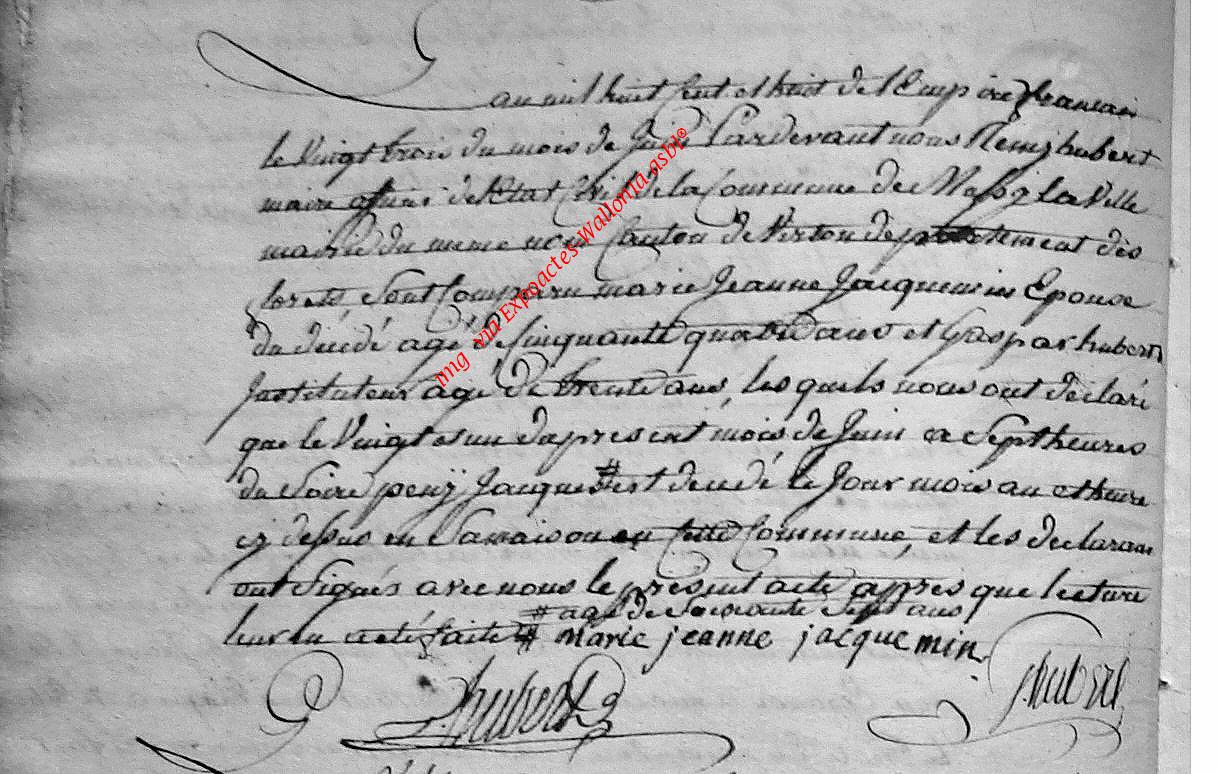 an mil huit Cent et huit de l'Empire francais
le Vingt trois du mois de Juin Pardevant nous Remy hubert
maire officier de l'Etat Civil de la Commune de Mussy la Ville
mairie du meme nom Canton de Virton departement dès
forets, sont Comparu marie Jeanne Jacquemin Epouse
du décédé agé de Cinquante quatre ans et Gaspar hubert
Instituteur agé de trente ans, les quels nous ont déclaré
que le Vingt et un du present mois de Juin a Sept heures
du Soire Jacque # est décédé le Jour mois an et heure
cy dessus en Sa maison en Cette Commune, et les declarans
ont Signés avec nous le présent acte apprès que lecture
# agé de Soixante Sept ans
leur en a eté faite # marie jeanne jacquemin
hubert
hubert
img via Expoactes-Wallonia.asbl©